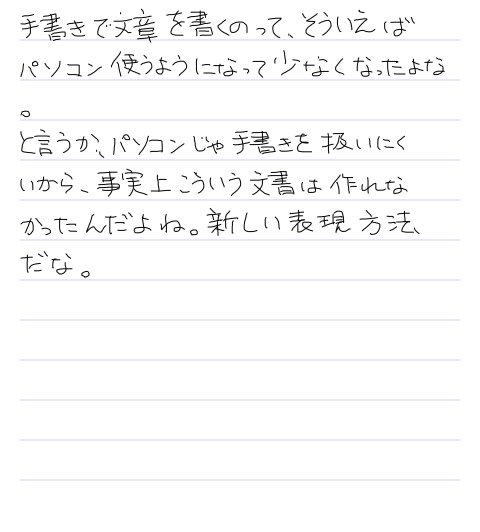 手書きで文章を書くのって、そういえば
パソコン使うようになって少なくなったよな
。
と言うか、パソコンじゃ手書きを扱いにく
いから、事実上こういう文書は作れな
かったんだよね。新しい表現方法、
だな。